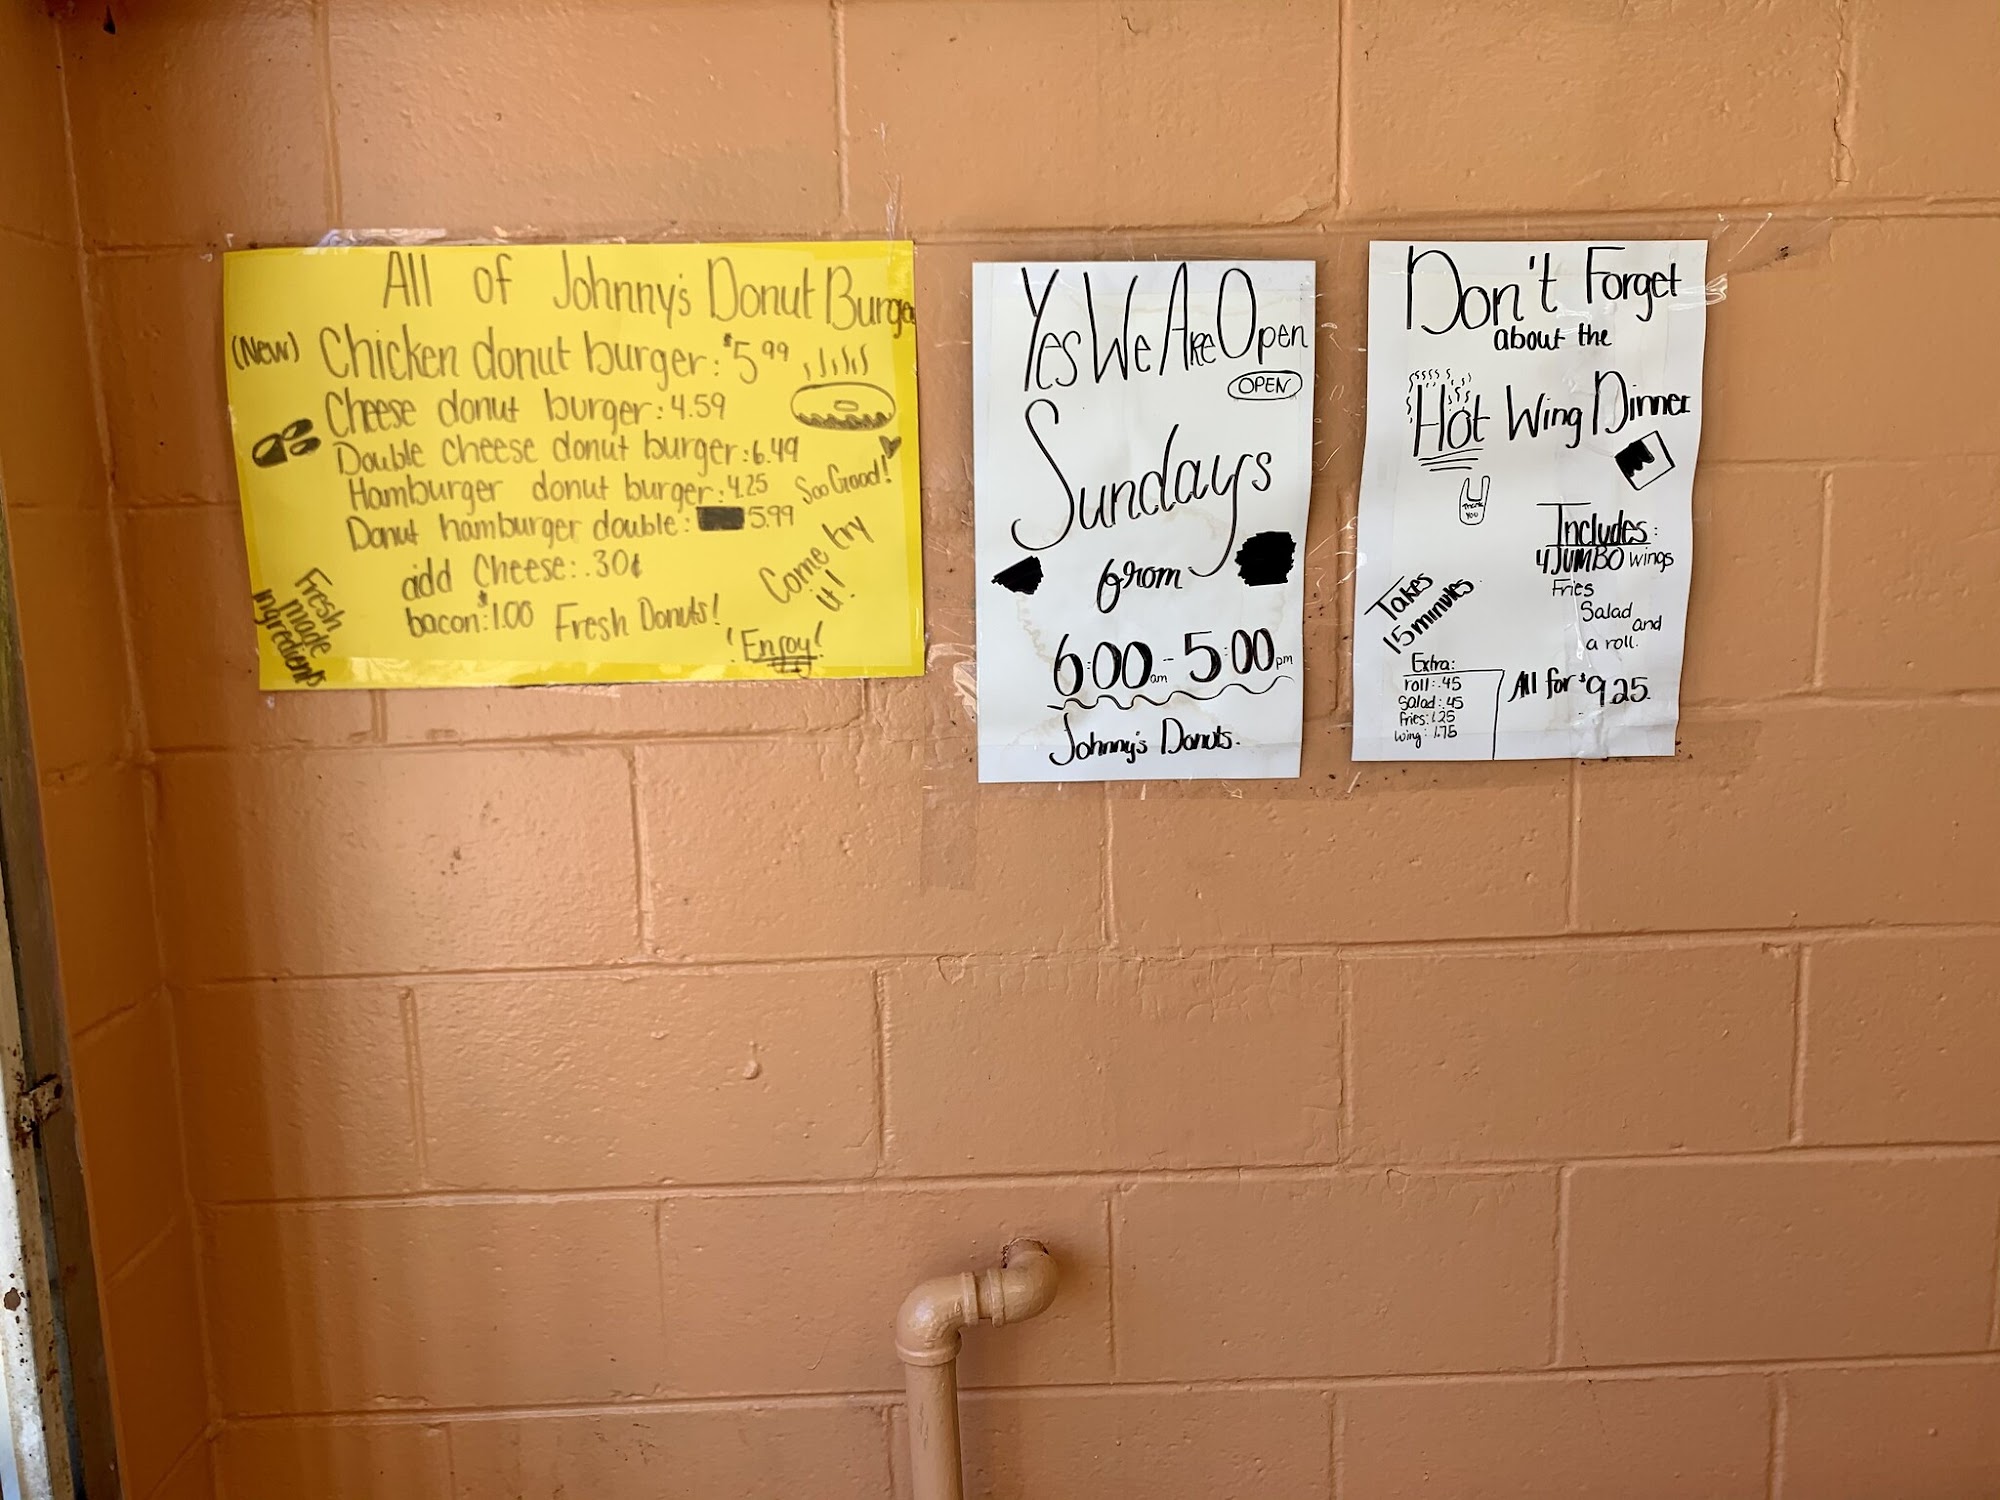 All of Johnny's Donut Burger
(New) Chicken donut burger: $5.99
Cheese donut burger: 4.59
Double cheese donut burger: 6.49
Hamburger donut burger: 4.25
Soo Good!
Donut hamburger double: 5.99
add Cheese: .30¢
bacon: $1.00
Fresh Donuts!
Come try
it!
!Enjoy!
Fresh
made
ingredients
Yes We Are Open
OPEN
Sundays
from
6:00am - 5:00pm
Johnny's Donuts.
Don't Forget
about the
Hot Wing Dinner
Thank
You
Includes:
4 JUMBO wings
Fries
Salad
and
a roll.
Takes
15 minutes
Extra:
roll: .45
Salad: .45
fries: 1.25
wing: 1.75
All for $9.25.